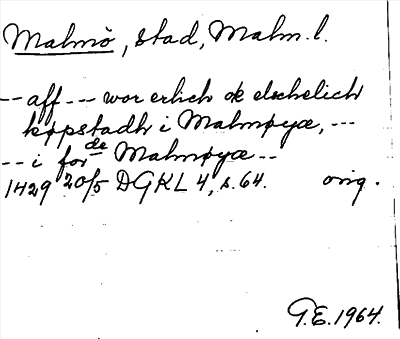 Malmö, stad, Malm. l.
-- aff --- wor erlich ok elschelich
köpstadh i Malmøyæ, ---
-- i for de Malmøyæ --
1429 20/5 DGKL 4, s. 64. orig.
G.E. 1964.